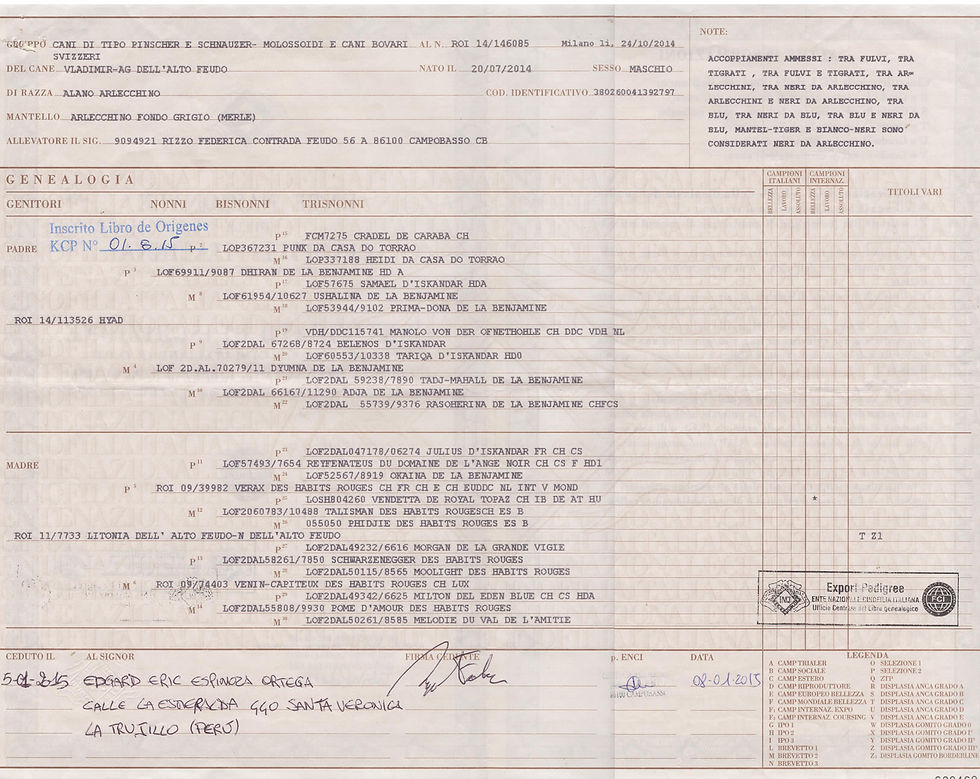 GRUPPO CANI DI TIPO PINSCHER E SCHNAUZER- MOLOSSOIDI E CANI BOVARI SVIZZERI AL N. ROI 14/146085 Milano li, 24/10/2014
DEL CANE VLADIMIR-AG DELL'ALTO FEUDO NATO IL 20/07/2014 SESSO MASCHIO
DI RAZZA ALANO ARLECCHINO COD. IDENTIFICATIVO 380260041392797
MANTELLO ARLECCHINO FONDO GRIGIO (MERLE)
ALLEVATORE IL SIG. 9094921 RIZZO FEDERICA CONTRADA FEUDO 56 A 86100 CAMPOBASSO CB
NOTE:
ACCOPPIAMENTI AMMESSI : TRA FULVI, TRA
TIGRATI , TRA FULVI E TIGRATI, TRA AR=
LECCHINI, TRA NERI DA ARLECCHINO, TRA
ARLECCHINI E NERI DA ARLECCHINO, TRA
BLU, TRA NERI DA BLU, TRA BLU E NERI DA
BLU, MANTEL-TIGER E BIANCO-NERI SONO
CONSIDERATI NERI DA ARLECCHINO.
GENEALOGIA
GENITORI NONNI BISNONNI TRISNONNI
CAMPIONI ITALIANI CAMPIONI INTERNAZ.
BELLEZZA LAVORO ASSOLUTO BELLEZZA LAVORO ASSOLUTO
TITOLI VARI
Inscrito Libro de Origenes
KCP Nº 01. 6.15
PADRE
P 15 FCM7275 CRADEL DE CARABA CH
P 7 LOP367231 PUNK DA CASA DO TORRAO
M 16 LOP337188 HEIDI DA CASA DO TORRAO
P 3 LOF69911/9087 DHIRAN DE LA BENJAMINE HD A
P 17 LOF57675 SAMAEL D'ISKANDAR HDA
M 8 LOF61954/10627 USHALINA DE LA BENJAMINE
M 18 LOF53944/9102 PRIMA-DONA DE LA BENJAMINE
ROI 14/113526 HYAD
P 19 VDH/DDC115741 MANOLO VON DER OFNETHOHLE CH DDC VDH NL
P 9 LOF2DAL 67268/8724 BELENOS D'ISKANDAR
M 20 LOF60553/10338 TARIQA D'ISKANDAR HD0
M 4 LOF 2D.AL.70279/11 DYUMNA DE LA BENJAMINE
P 21 LOF2DAL 59238/7890 TADJ-MAHALL DE LA BENJAMINE
M 10 LOF2DAL 66167/11290 ADJA DE LA BENJAMINE
M 22 LOF2DAL 55739/9376 RASOHERINA DE LA BENJAMINE CHFCS
MADRE
P 23 LOF2DAL047178/06274 JULIUS D'ISKANDAR FR CH CS
P 11 LOF57493/7654 REYFENATEUS DU DOMAINE DE L'ANGE NOIR CH CS F HD1
M 24 LOF52567/8919 OKAINA DE LA BENJAMINE
P 5 ROI 09/39982 VERAX DES HABITS ROUGES CH FR CH E CH EUDDC NL INT V MOND
P 25 LOSH804260 VENDETTA DE ROYAL TOPAZ CH IB DE AT HU *
M 12 LOF2060783/10488 TALISMAN DES HABITS ROUGESCH ES B
M 26 055050 PHIDJIE DES HABITS ROUGES ES B
ROI 11/7733 LITONIA DELL' ALTO FEUDO-N DELL'ALTO FEUDO T Z1
P 27 LOF2DAL49232/6616 MORGAN DE LA GRANDE VIGIE
P 13 LOF2DAL58261/7850 SCHWARZENEGGER DES HABITS ROUGES
M 28 LOF2DAL50115/8565 MOOLIGHT DES HABITS ROUGES
M 6 ROI 09/74403 VENIN-CAPITEUX DES HABITS ROUGES CH LUX
P 29 LOF2DAL49342/6625 MILTON DEL EDEN BLUE CH CS HDA
M 14 LOF2DAL55808/9930 POME D'AMOUR DES HABITS ROUGES
M 30 LOF2DAL50261/8585 MELODIE DU VAL DE L'AMITIE
Export Pedigree
ENTE NAZIONALE CINOFILIA ITALIANA
Ufficio Centrale del Libro genealogico
FCI
CEDUTO IL AL SIGNOR FIRMA CEDENTE p. ENCI DATA
5-01-2015 EDGARD ERIC ESPINOZA ORTEGA 08-01-2015
CALLE LA ESMERALDA 440 SANTA VERONICA
LA TRUJILLO (PERÙ)
LEGENDA
A CAMP TRIALER O SELEZIONE 1
B CAMP SOCIALE P SELEZIONE 2
C CAMP ESTERO Q ZTP
D CAMP RIPRODUTTORE R DISPLASIA ANCA GRADO A
E CAMP EUROPEO BELLEZZA S DISPLASIA ANCA GRADO B
F CAMP MONDIALE BELLEZZA T DISPLASIA ANCA GRADO C
F1 CAMP INTERNAZ. EXPO U DISPLASIA ANCA GRADO D
F2 CAMP INTERNAZ. COURSING V DISPLASIA ANCA GRADO E
G IPO 1 W DISPLASIA GOMITO GRADO 0
H IPO 2 X DISPLASIA GOMITO GRADO I°
I IPO 3 Y DISPLASIA GOMITO GRADO II°
L BREVETTO 1 Z DISPLASIA GOMITO GRADO III°
M BREVETTO 2 Z1 DISPLASIA GOMITO BORDERLINE
N BREVETTO 3